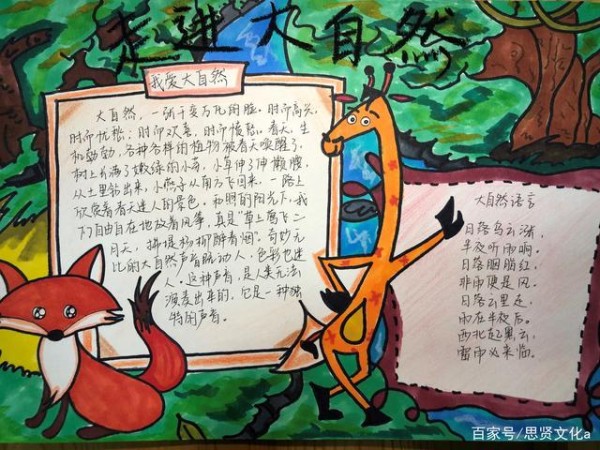 走进大自然
我爱大自然
大自然,一张千变万化的脸。时而高兴,
时而忧愁;时而欢喜,时而愤怒。春天,生
机勃勃,各种各样的植物被春天唤醒了,
树上长满了嫩绿的小芽,小草伸了伸懒腰
从土里钻出来,小燕子从南方飞回来,一路上
欣赏着春天迷人的景色。和煦的阳光下,我
们自由自在地放着风筝,真是“草上鹰飞二
月天,拂堤杨柳醉春烟”。奇妙无
比的大自然声音既动人,色彩也迷
人。这种声音,是人类无法
演奏出来的,它是一种独
特的声音。
大自然语言
日落乌云涨,
半夜听雨响。
日落胭脂红,
非雨便是风。
日落云里走,
雨在半夜后。
西北起黑云,
雷雨必来临。
百家号/思贤文化a